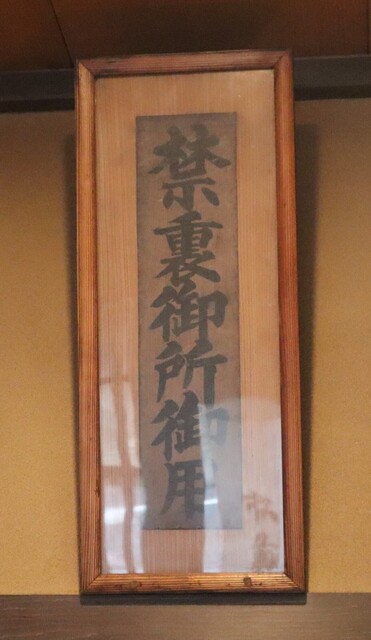 禁裏御所御用